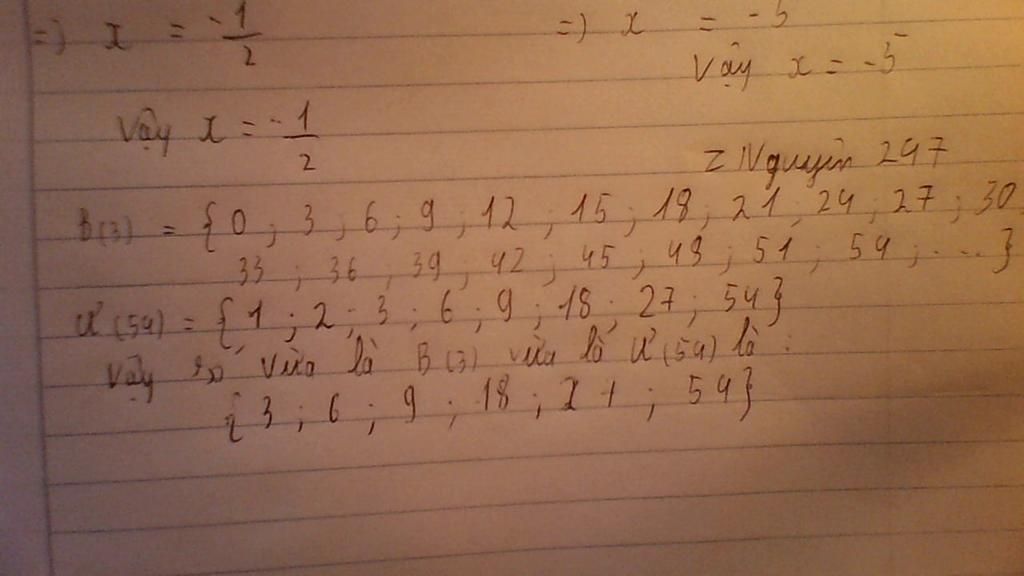 =) x = -1/2
=) x = -5
Vậy x = -5
Vậy x = -1/2
Nguyên 247
B(3) = {0 ; 3 ; 6 ; 9 ; 12 ; 15 ; 18 ; 21 ; 24 ; 27 ; 30
33 ; 36 ; 39 ; 42 ; 45 ; 48 ; 51 ; 54 ; ...}
Ư(54) = {1 ; 2 ; 3 ; 6 ; 9 ; 18 ; 27 ; 54}
Vậy số vừa là B(3) vừa là Ư(54) là :
{3 ; 6 ; 9 ; 18 ; ; 54}